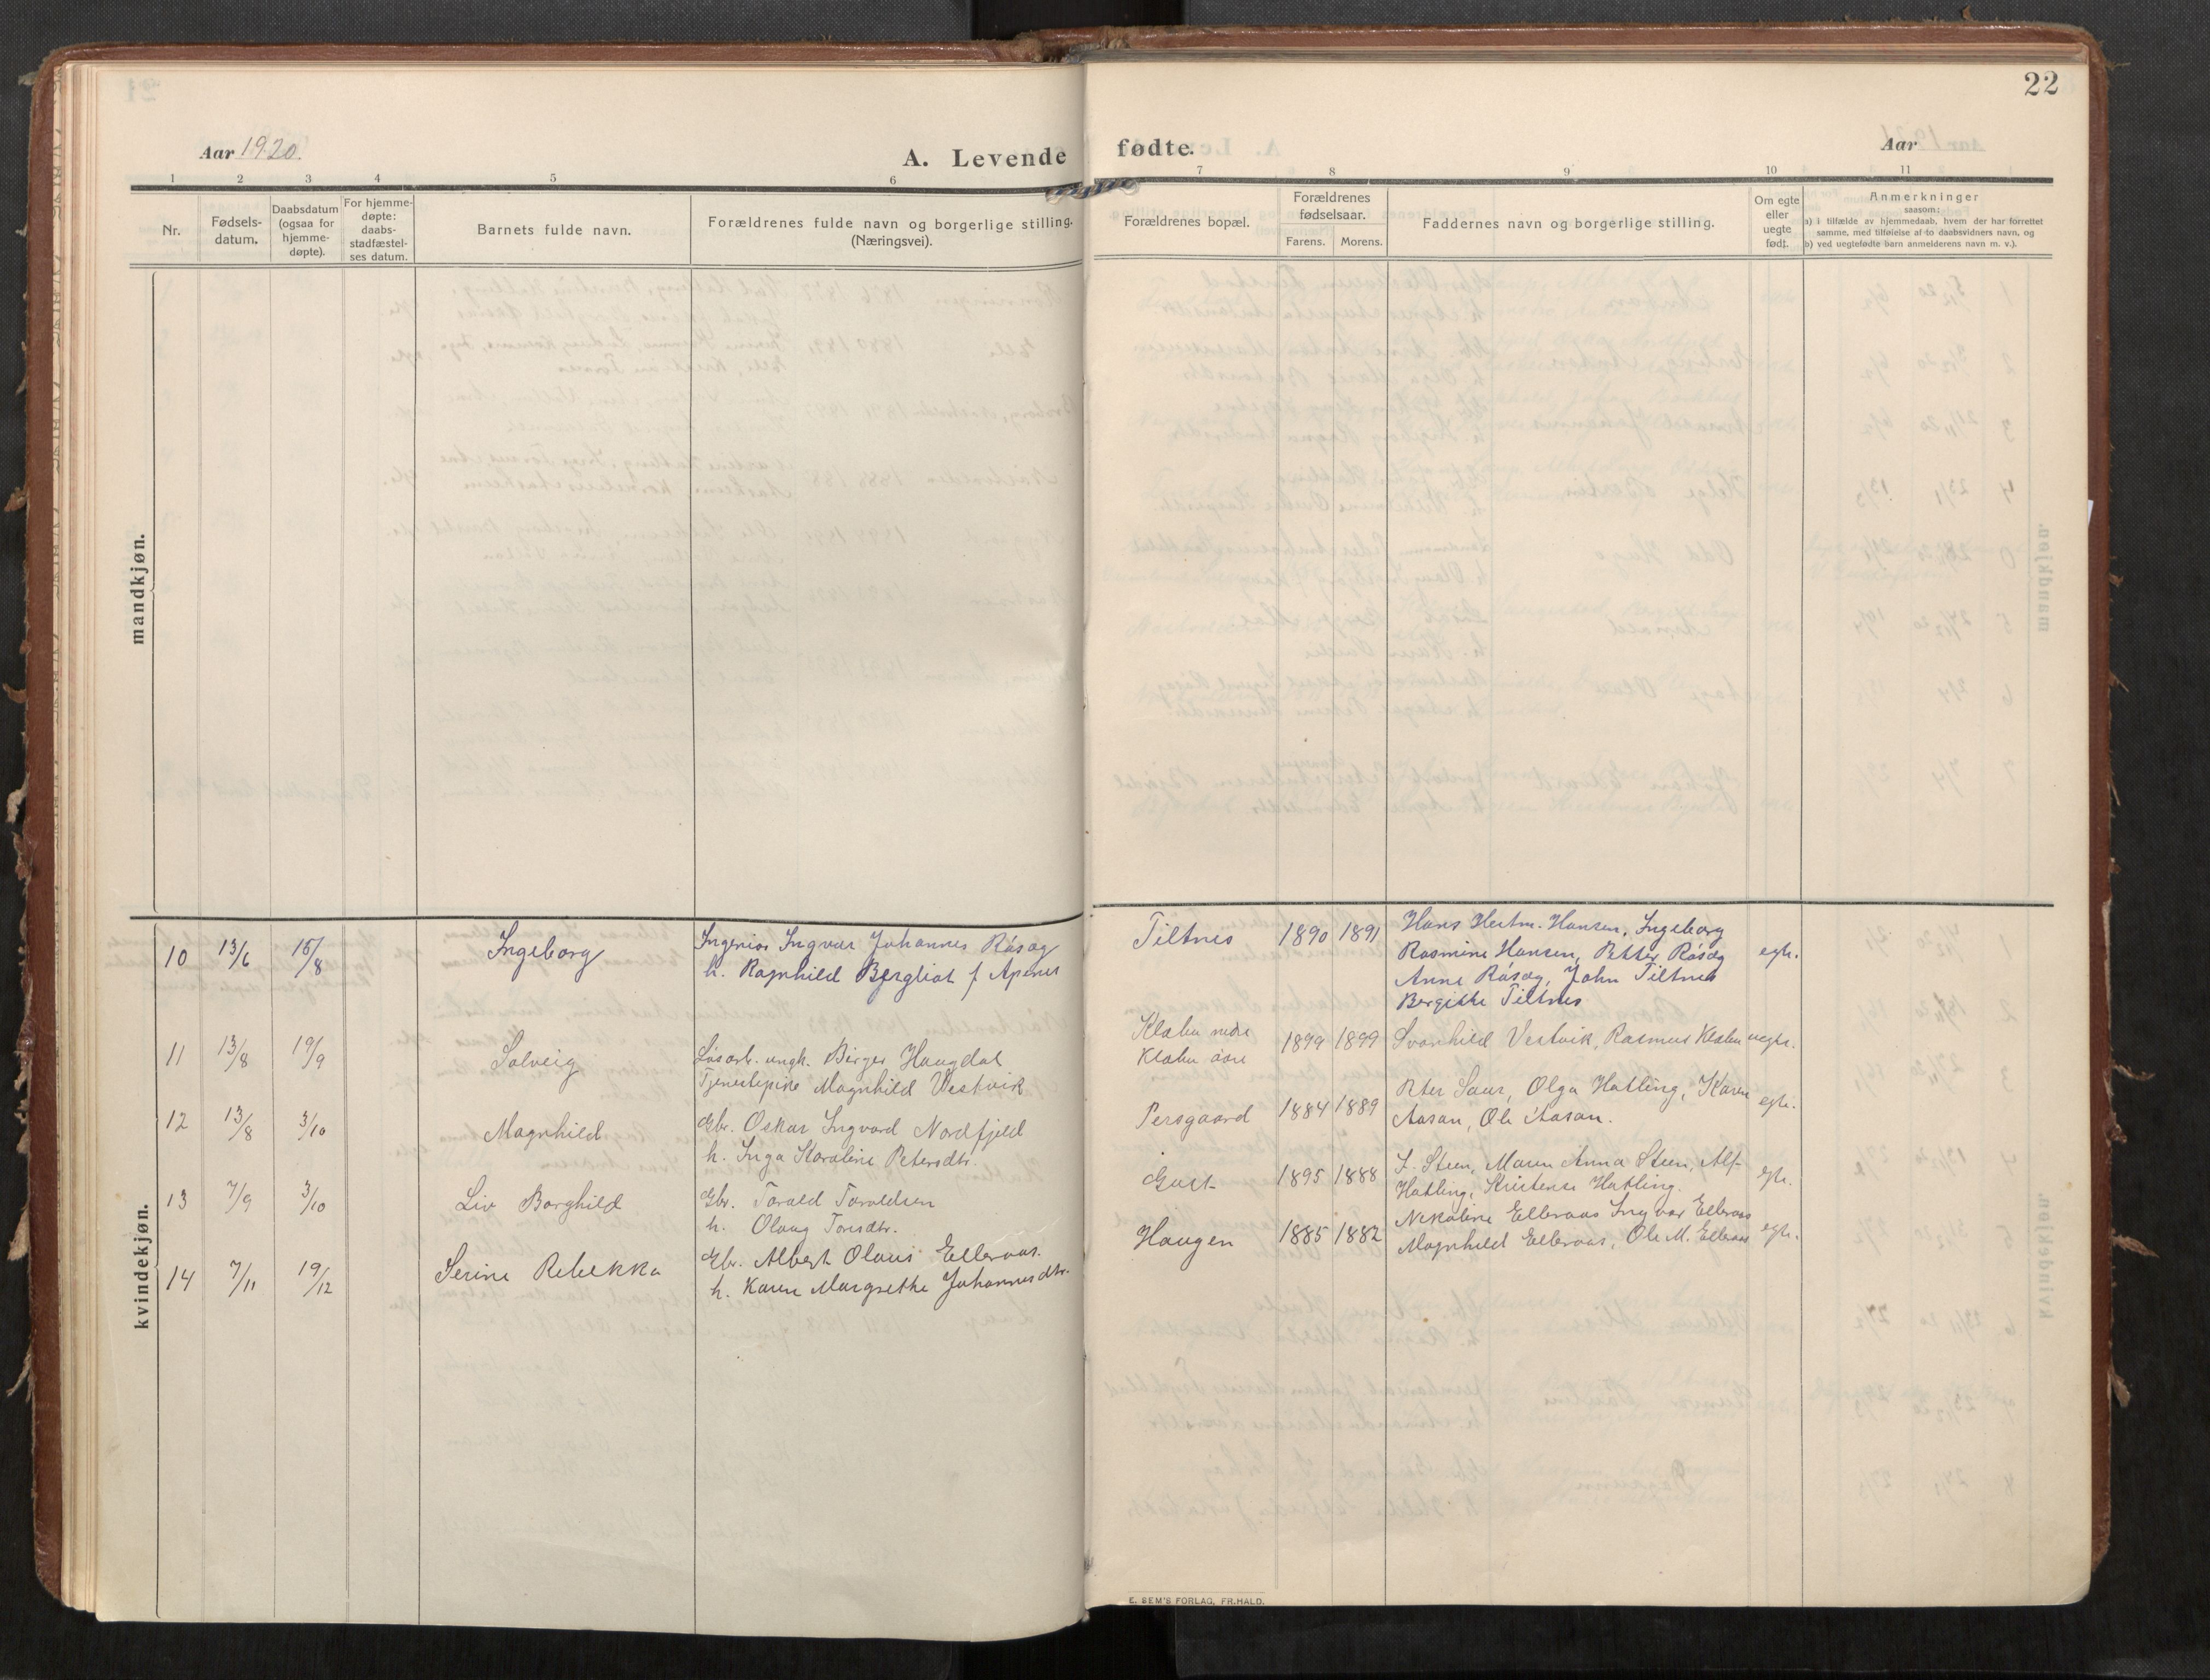 22
Aar 1920.
A. Levende
fødte.
Aar
1
2
3
4
5
6
7
8
9
10
11
Nr.
Fødsels-
datum.
Daabsdatum
(ogsaa for
hjemme-
døpte).
For hjemme-
døpte:
daabs-
stadfæstel-
ses datum.
Barnets fulde navn.
Forældrenes fulde navn og borgerlige stilling.
(Næringsvei).
Forældrenes bopæl.
Forældrenes
fødselsaar.
Farens.
Morens.
Faddernes navn og borgerlige stilling.
Om egte
eller
uegte
født.
Anmerkninger
saasom:
a) i tilfælde av hjemmedaab, hvem der har forrettet
samme, med tilføielse af to daabsvidners navn, og
b) ved uegtefødte barn anmelderens navn m. v.).
mandkjøn.
kvindekjøn.
10 13/6 15/8 Ingeborg
Ingeniør Ingvar Johannes Råsøg
h. Ragnhild Bergliot f Apenes
Tiltnes 1890 1891
Hans Hertm. Hansen, Ingeborg
Rasmine Hansen, Petter Råsøg
Anne Råsøg, John Tiltnes
Bergitte Tiltnes
egte.
11 13/8 19/9 Solveig
Løsarb. ungk. Birger Haugdal
Tjenestepike Magnhild Vestvik
Klæbu nedre
Klæbu øvre
1899 1899
Svanhild Vestvik, Rasmus Klæbu
uegte.
12 13/8 3/10 Magnhild
Gbr. Oskar Ingvard Nordfjeld
h. Inga Karoline Petersdtr.
Persgaard 1884 1889
Peter Saur, Olga Hatling, Karen
Aasan, Ole Aasan.
egte.
13 7/9 3/10 Liv Borghild
Gbr. Torald Toraldsen
h. Olaug Toresdtr.
1895 1888
Steen, Maren Anna Steen, Alf
Hatling, Kristense Hatling.
egte.
14 7/11 19/12 Serine Rebekka
Gbr. Albert Olaus Ellevaas.
h. Karen Margrethe Johannesdtr.
Haugen 1885 1882
Nekoline Elleraas Ingvar Elleraas
Magnhild Elleraas, Ole M. Elleraas
egte.
E. SEM'S FORLAG, FR.HALD.